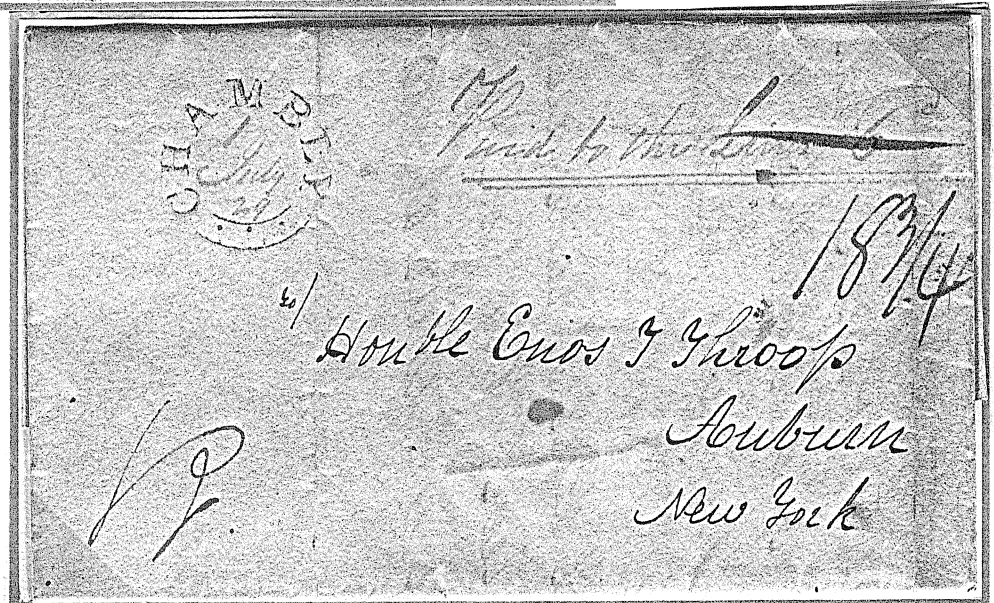 CHAMBLY
1
July
29
Paid to the Lines 6
18 3/4
Honble Enos T Throop
Auburn
New York